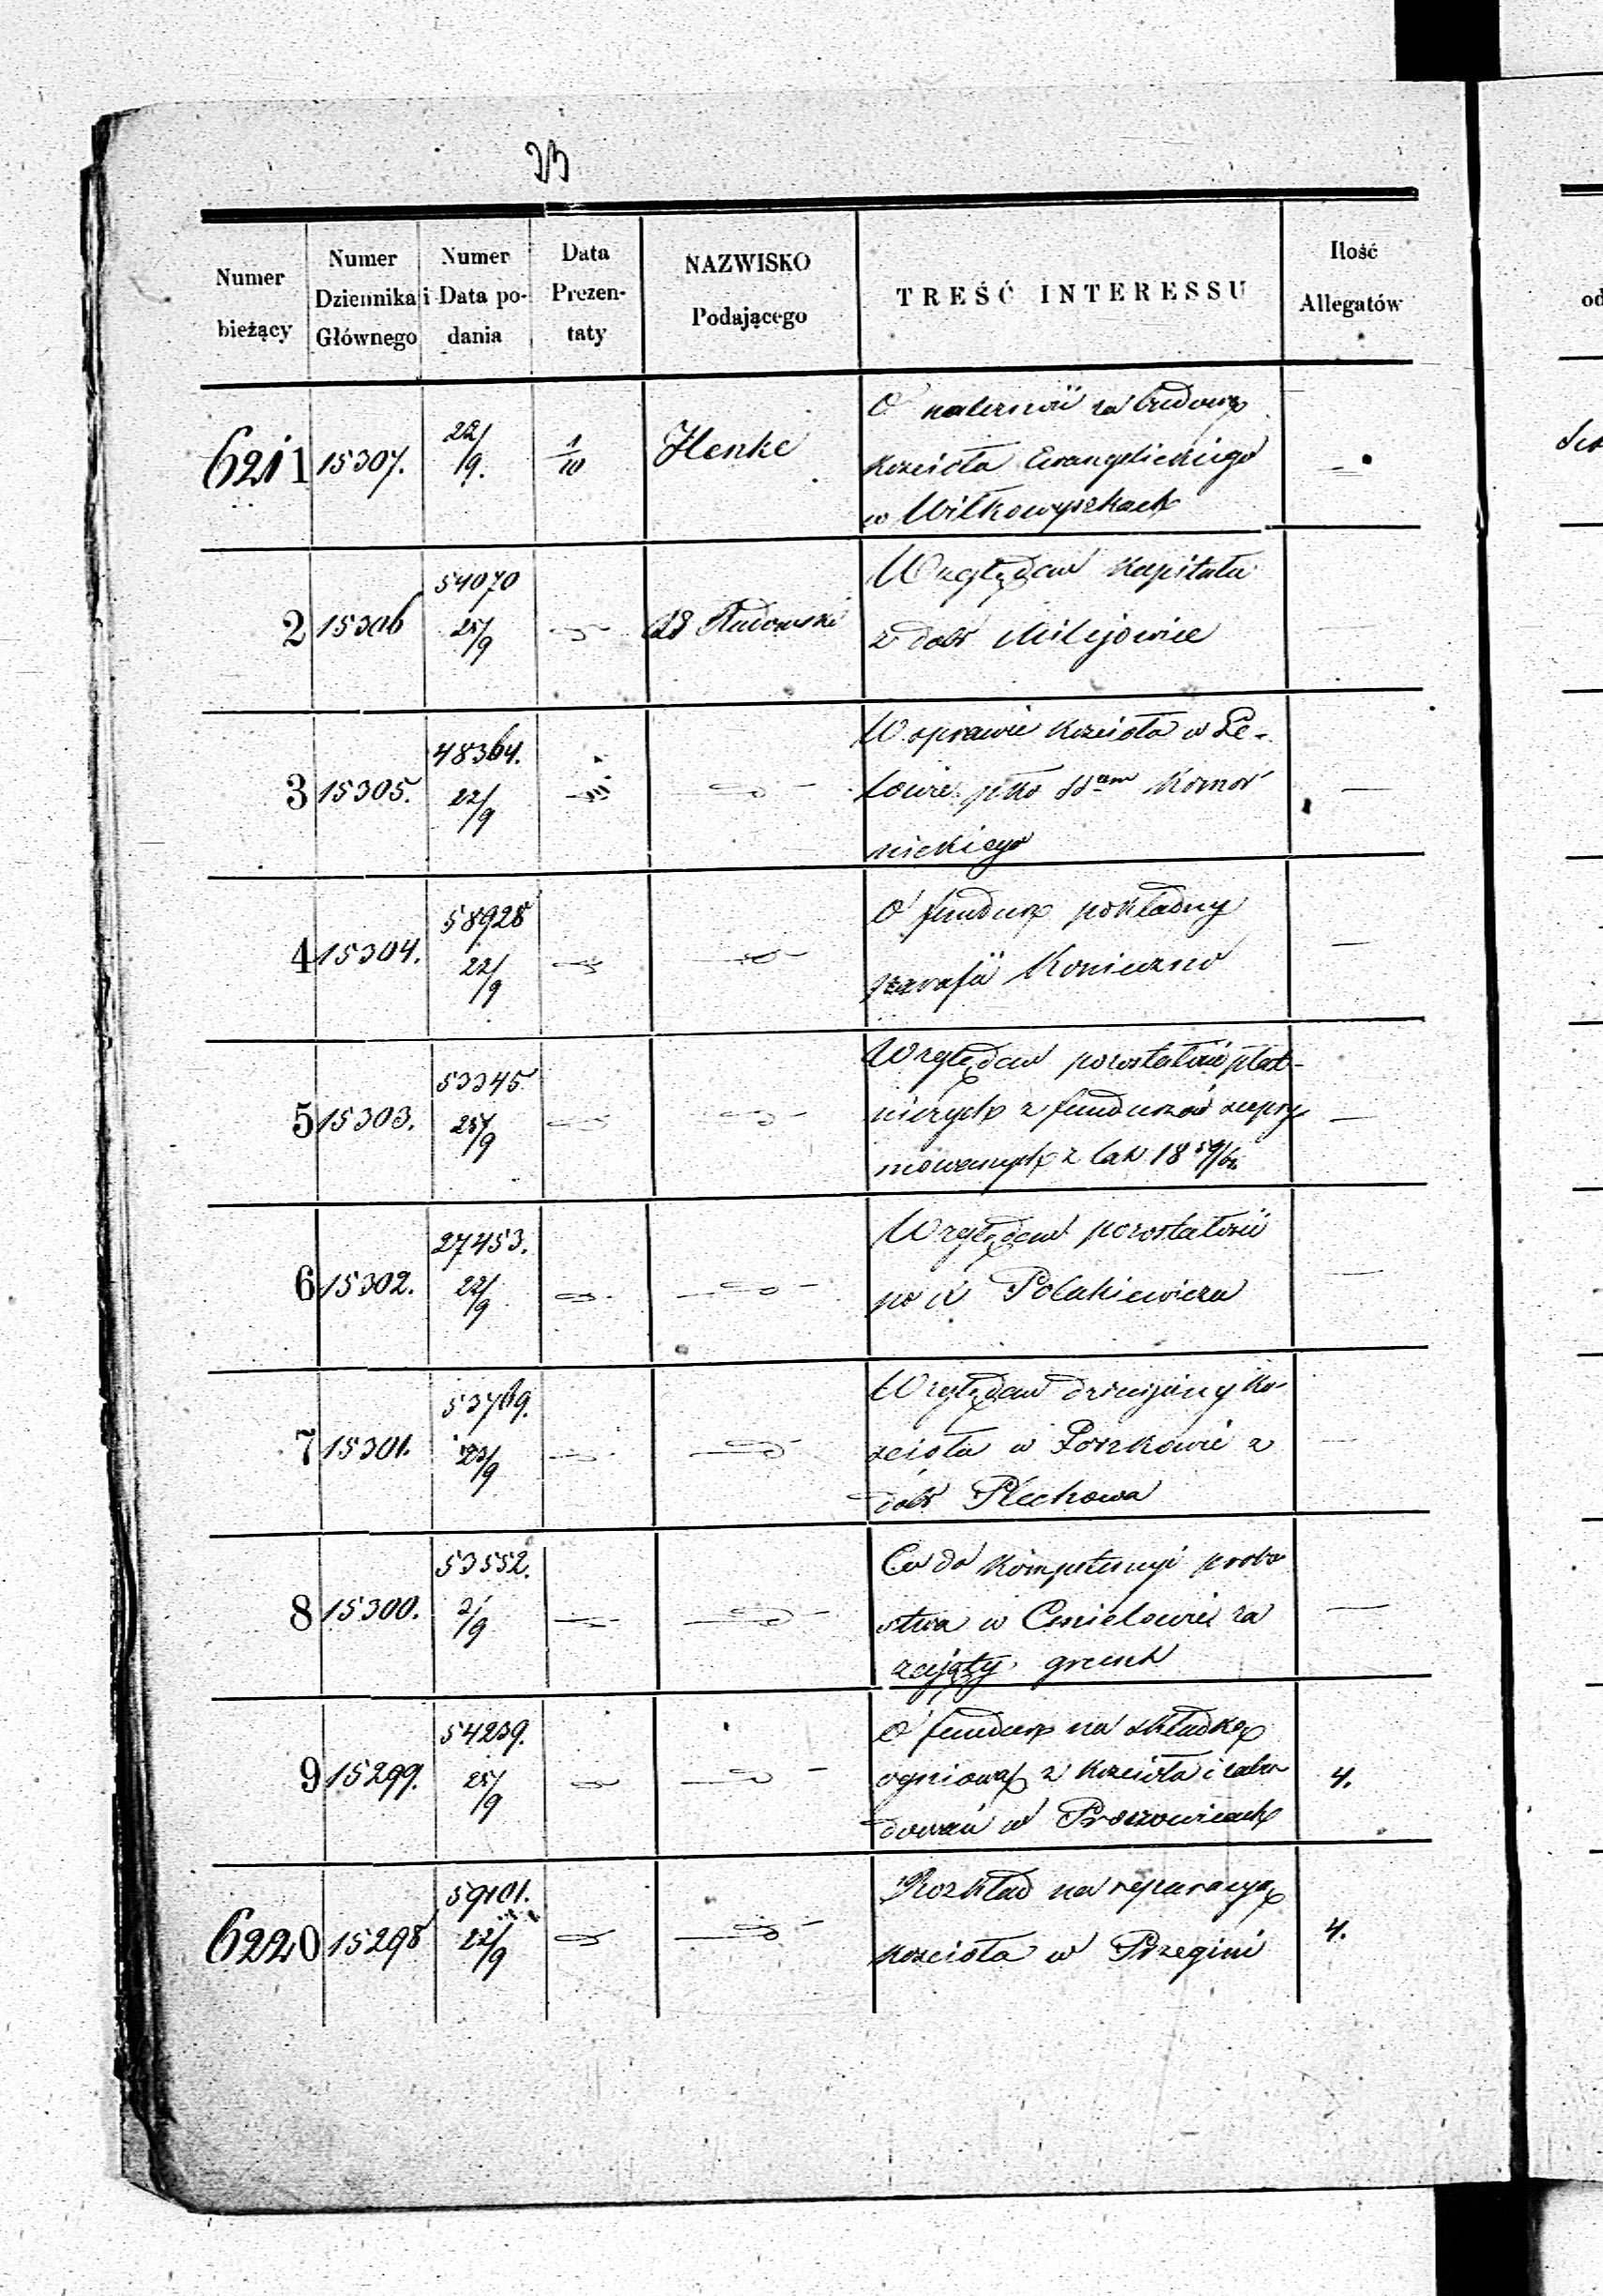 Numer bieżący
Numer Dziennika Głównego
Numer i Data podania
Data Prezentaty
NAZWISKO Podającego
TREŚĆ INTERESSU
Ilość Allegatów
6211 15307. 22/9. 1/10 Henke
O należność za budowę
Kościoła Ewangelickiego
w Wiłkowyszkach
2 15306 54070 25/9 Rudowski
Względem Kapitału
z dóbr Milejowice
3 15305. 48364. 22/9
W sprawie Kościoła w
nickiego
4 15304. 58928 22/9
O fundusz pokładny
parafii Konieczno
5 15303. 53345 25/9
Względem pozostałości
z funduszów supry-
mowanych z lat 18 59/62
6 15302. 27453. 22/9
Względem pozostałości
po X Polakiewiczu
7 15301. 53769. 23/9
Względem dziesięciny Ko-
ścioła w z
dóbr Plechowa
8 15300. 53552. 2/9
Co do kompetencyi probo
stwa w Cmielowie za
zajęty grunt
9 15299. 54239. 25/9
O fundusz na składkę
ogniową z Kościoła i zabu
dowań w Proszowicach
4.
6220 15298 59101. 22/9
Rozkład na reparacyą
Kościoła w Przegini
4.